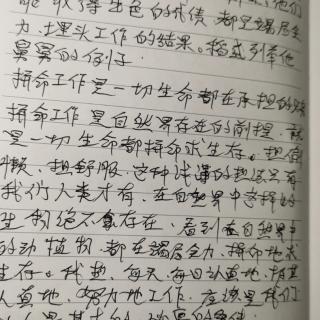 能取得出色的成绩,都是竭尽全
力、埋头工作的结果。稻盛引举他
舅舅的例子.
拼命工作是一切生命都在承担的
拼命工作是自然界存在的前提,
是一切生命都拼命求生存。想偷
懒、想舒服、这种浅薄的想法只有
我们人类才有,在自然界中这样的
生物绝不会存在、看到在自然界中
的动植物,都在竭尽全力,拼命地求
生存。我想,每天、每日认真地、极其
认真地、努力地工作,应该是我们